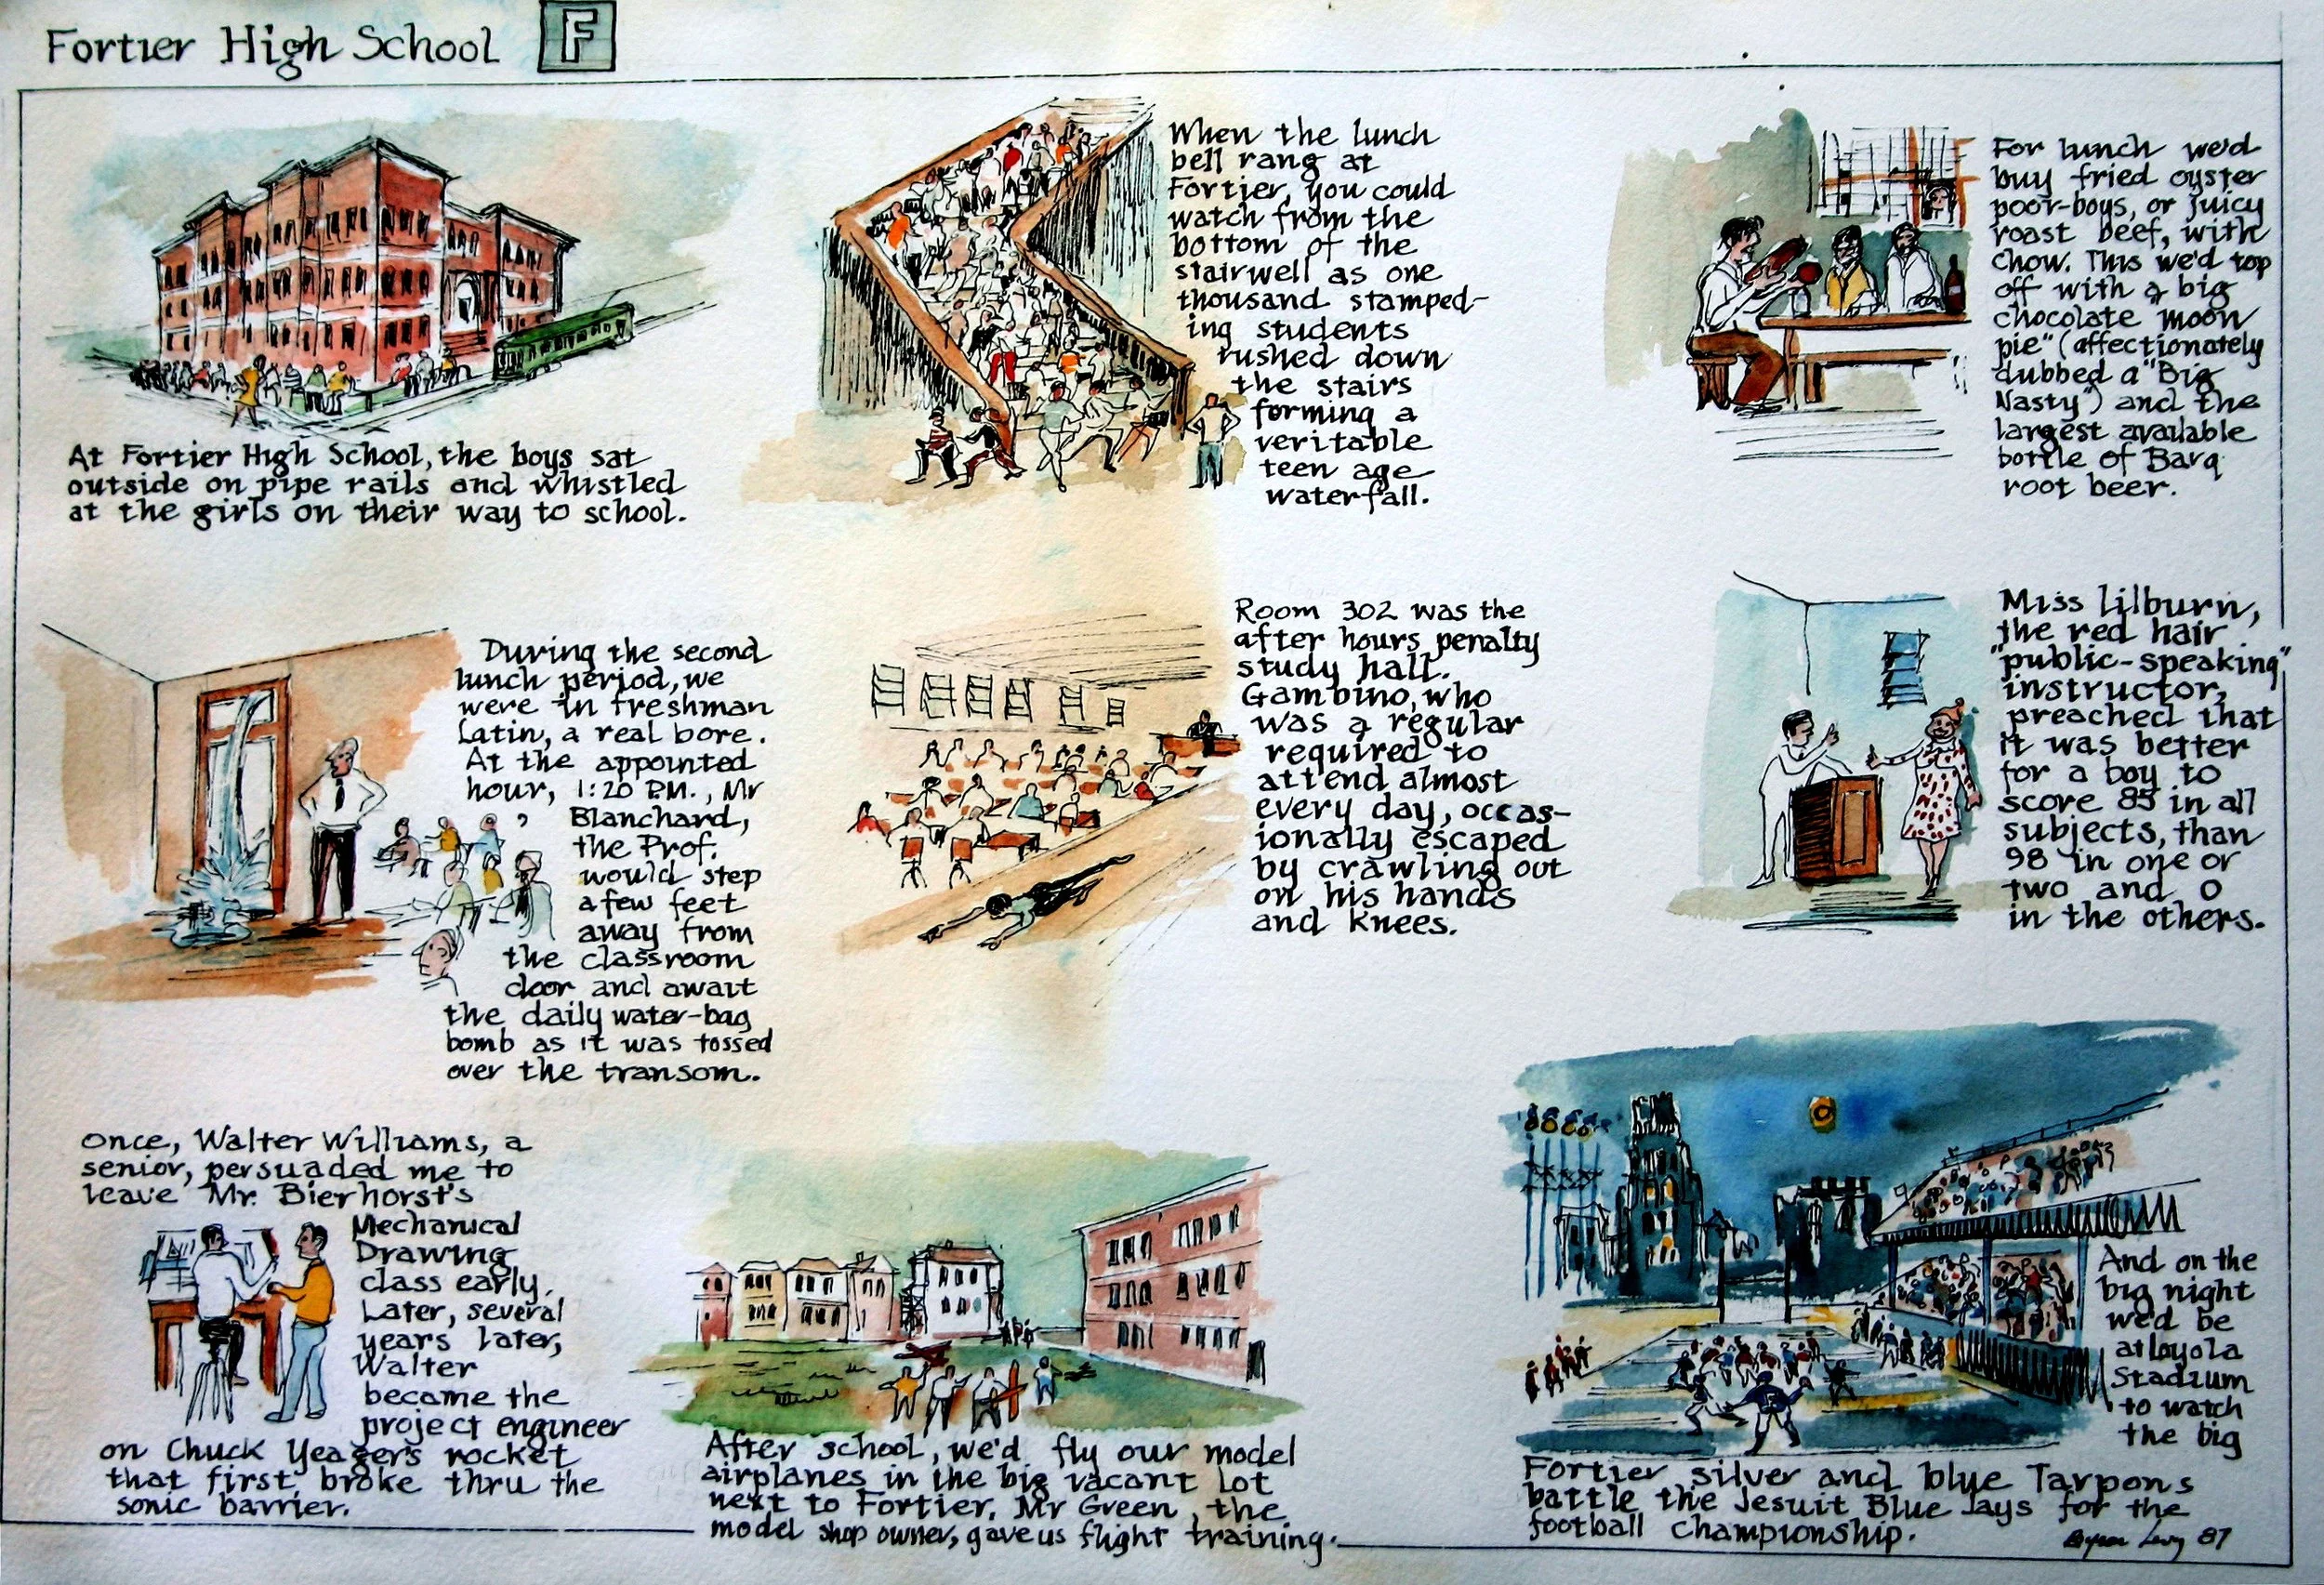 Fortier High School F
At Fortier High School, the boys sat
outside on pipe rails and whistled
at the girls on their way to school.
When the lunch
bell rang at
Fortier, you could
watch from the
bottom of the
stairwell as one
thousand stamped-
ing students
rushed down
the stairs
forming a
veritable
teen age
waterfall.
For lunch we'd
buy fried oyster
poor-boys, or juicy
roast beef, with
chow. This we'd top
off with a big
chocolate moon
pie" (affectionately
dubbed a "Big
Nasty") and the
largest available
bottle of Barq
root beer.
During the second
lunch period, we
were in freshman
Latin, a real bore.
At the appointed
hour, 1:20 P.M., Mr
Blanchard,
the Prof.
would step
a few feet
away from
the classroom
door and await
the daily water-bag
bomb as it was tossed
over the transom.
Room 302 was the
after hours penalty
study hall.
Gambino, who
was a regular
required to
attend almost
every day, occas-
ionally escaped
by crawling out
on his hands
and knees.
Miss Lilburn,
the red hair
"public-speaking"
instructor,
preached that
it was better
for a boy to
score 85 in all
subjects, than
98 in one or
two and 0
in the others.
Once, Walter Williams, a
senior, persuaded me to
leave Mr. Bierhorst's
Mechanical
Drawing
class early.
Later, several
years later,
Walter
became the
project engineer
on Chuck Yeager's rocket
that first broke thru the
sonic barrier.
After school, we'd fly our model
airplanes in the big vacant lot
next to Fortier. Mr Green, the
model shop owner, gave us flight training.
And on the
big night
we'd be
at Loyola
Stadium
to watch
the big
Fortier silver and blue Tarpons
battle the Jesuit Blue Jays for the
football championship.
Byron Levy 87